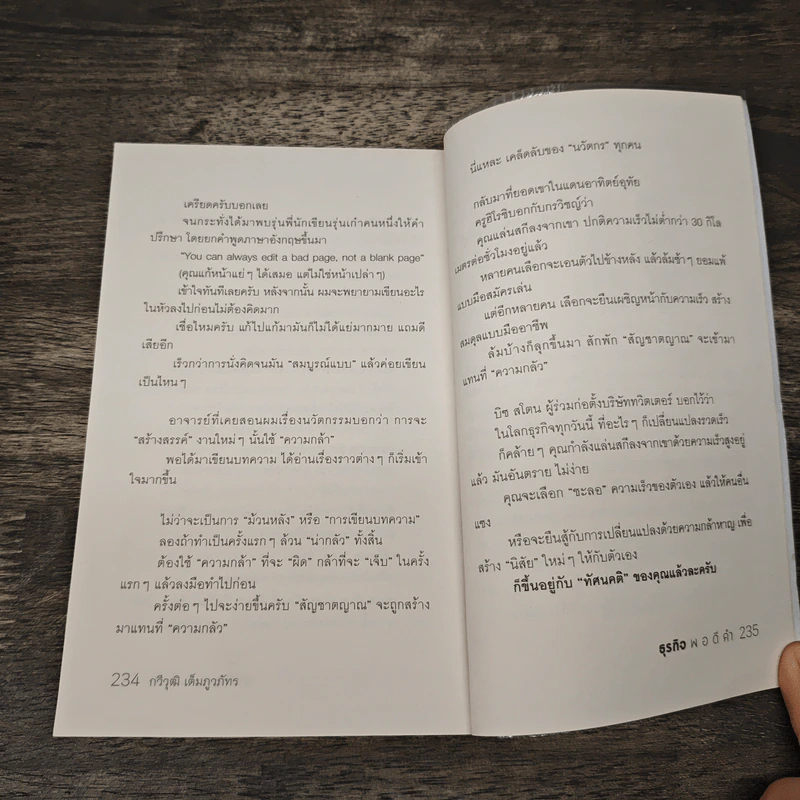 เครียดครับบอกเลย
จนกระทั่งได้มาพบรุ่นพี่นักเขียนรุ่นเก๋าคนหนึ่งให้คำ
ปรึกษา โดยยกคำพูดภาษาอังกฤษขึ้นมา
"You can always edit a bad page, not a blank page"
(คุณแก้หน้าแย่ๆ ได้เสมอ แต่ไม่ใช่หน้าเปล่าๆ)
เข้าใจทันทีเลยครับ หลังจากนั้น ผมจะพยายามเขียนอะไร
ในหัวลงไปก่อนไม่ต้องคิดมาก
เชื่อไหมครับ แก้ไปแก้มามันก็ไม่ได้แย่มากมาย แถมดี
เสียอีก
เร็วกว่าการนั่งคิดจนมัน "สมบูรณ์แบบ" แล้วค่อยเขียน
เป็นไหนๆ
อาจารย์ที่เคยสอนผมเรื่องนวัตกรรมบอกว่า การจะ
"สร้างสรรค์" งานใหม่ๆ นั้นใช้ "ความกล้า"
พอได้มาเขียนบทความ ได้อ่านเรื่องราวต่างๆ ก็เริ่มเข้า
ใจมากขึ้น
ไม่ว่าจะเป็นการ "ม้วนหลัง" หรือ "การเขียนบทความ"
ลองถ้าทำเป็นครั้งแรกๆ ล้วน "น่ากลัว" ทั้งสิ้น
ต้องใช้ "ความกล้า" ที่จะ "ผิด" กล้าที่จะ "เจ็บ" ในครั้ง
แรกๆ แล้วลงมือทำไปก่อน
ครั้งต่อๆ ไปจะง่ายขึ้นครับ "สัญชาตญาณ" จะถูกสร้าง
มาแทนที่ "ความกลัว"
234 กวีวุฒิ เต็มภูวภัทร
นี่แหละ เคล็ดลับของ "นวัตกร" ทุกคน
กลับมาที่ยอดเขาในแดนอาทิตย์อุทัย
ครูฮิโรชิบอกกับกรวิชญ์ว่า
คุณแล่นสกีลงจากเขา ปกติความเร็วไม่ต่ำกว่า 30 กิโล
เมตรต่อชั่วโมงอยู่แล้ว
หลายคนเลือกจะเอนตัวไปข้างหลัง แล้วล้มช้าๆ ยอมแพ้
แบบมือสมัครเล่น
แต่อีกหลายคน เลือกจะยืนเผชิญหน้ากับความเร็ว สร้าง
สมดุลแบบมืออาชีพ
ล้มบ้างก็ลุกขึ้นมา สักพัก "สัญชาตญาณ" จะเข้ามา
แทนที่ "ความกลัว"
บิซ สโตน ผู้ร่วมก่อตั้งบริษัททวิตเตอร์ บอกไว้ว่า
ในโลกธุรกิจทุกวันนี้ ที่อะไรๆ ก็เปลี่ยนแปลงรวดเร็ว
ก็คล้ายๆ คุณกำลังแล่นสกีลงจากเขาด้วยความเร็วสูงอยู่
แล้ว มันอันตราย ไม่ง่าย
คุณจะเลือก "ชะลอ" ความเร็วของตัวเอง แล้วให้คนอื่น
แซง
หรือจะยืนสู้กับการเปลี่ยนแปลงด้วยความกล้าหาญ เพื่อ
สร้าง "นิสัย" ใหม่ๆ ให้กับตัวเอง
ก็ขึ้นอยู่กับ "ทัศนคติ" ของคุณแล้วละครับ
ธุรกิจ พ อ ดี คำ 235